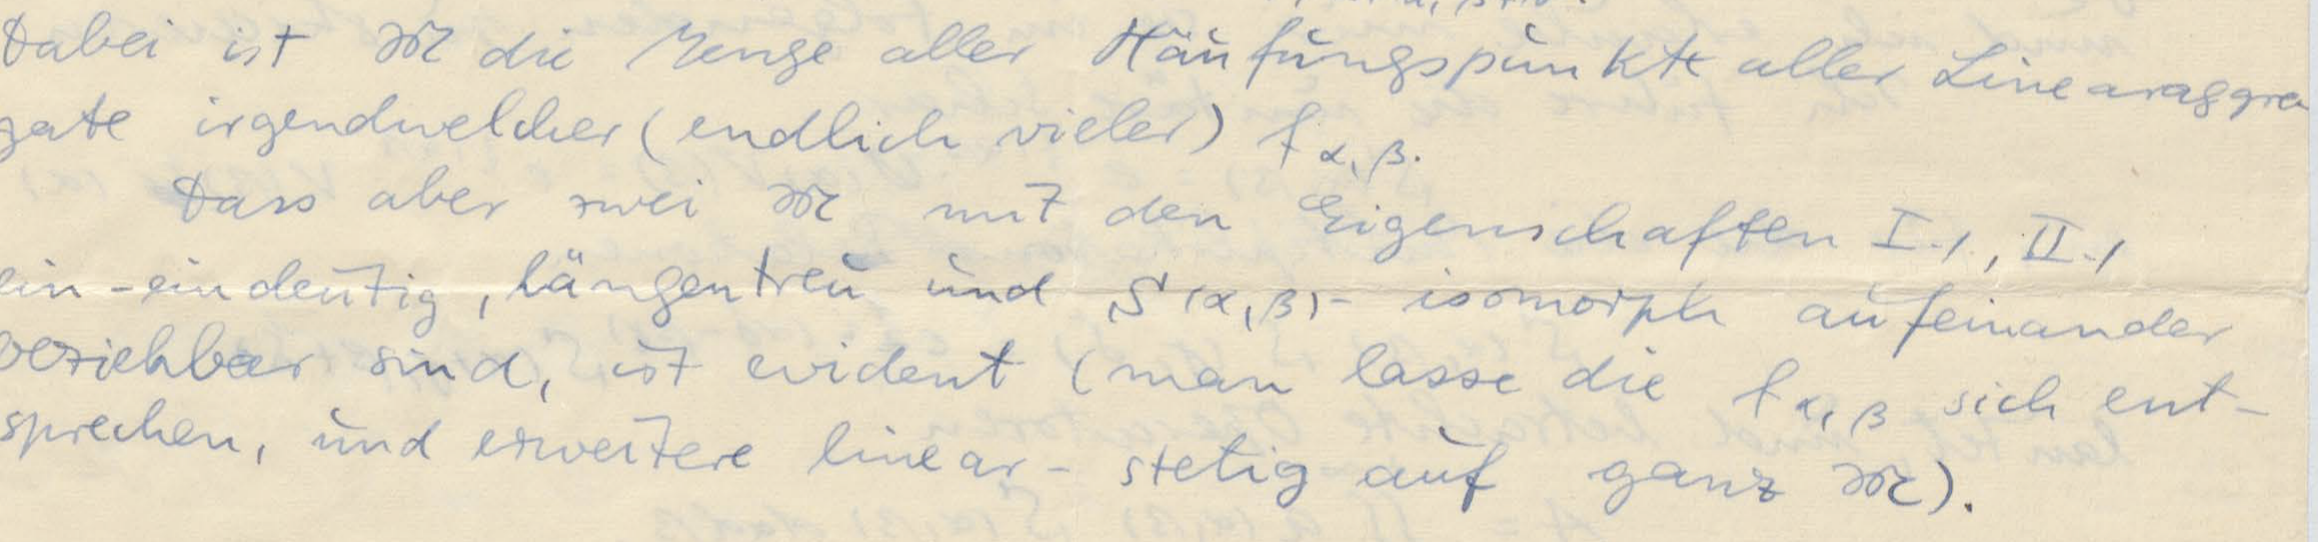 Dabei ist 𝔐 die Menge aller Häufungspunkte aller Linearaggre
gate irgendwelcher (endlich vieler) f α, β.
Dass aber zwei 𝔐 mit den Eigenschaften I., II.,
ein-eindeutig, längentreu und S(α, β)- isomorph aufeinander
beziehbar sind, ist evident (man lasse die f α, β sich ent-
sprechen, und erweitere linear-stetig auf ganz 𝔐).